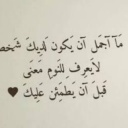 مَآ آجمَل آن يَكون لَديكَ شَخص
لآيَعرِف للنَوم مَعنَى
قَبلَ آن يَطمَئِن عَليكَ ♥